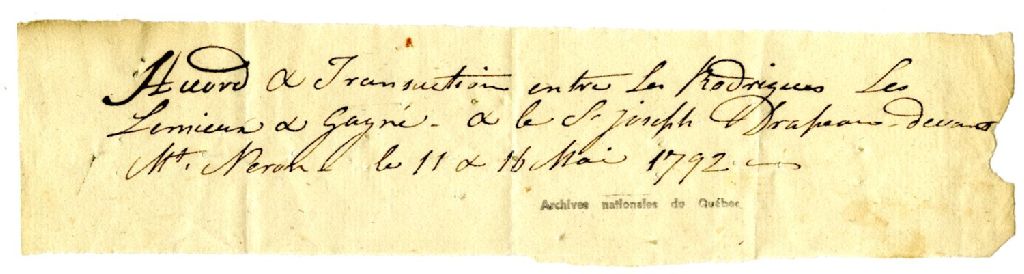 Accord & Transaction entre Les Rodrigues Les
Lemieux & Gagné - & le Sr Joseph Drapeau devant
Mt. Neron - le 11 & 16 Mai 1792
Archives nationales du Québec